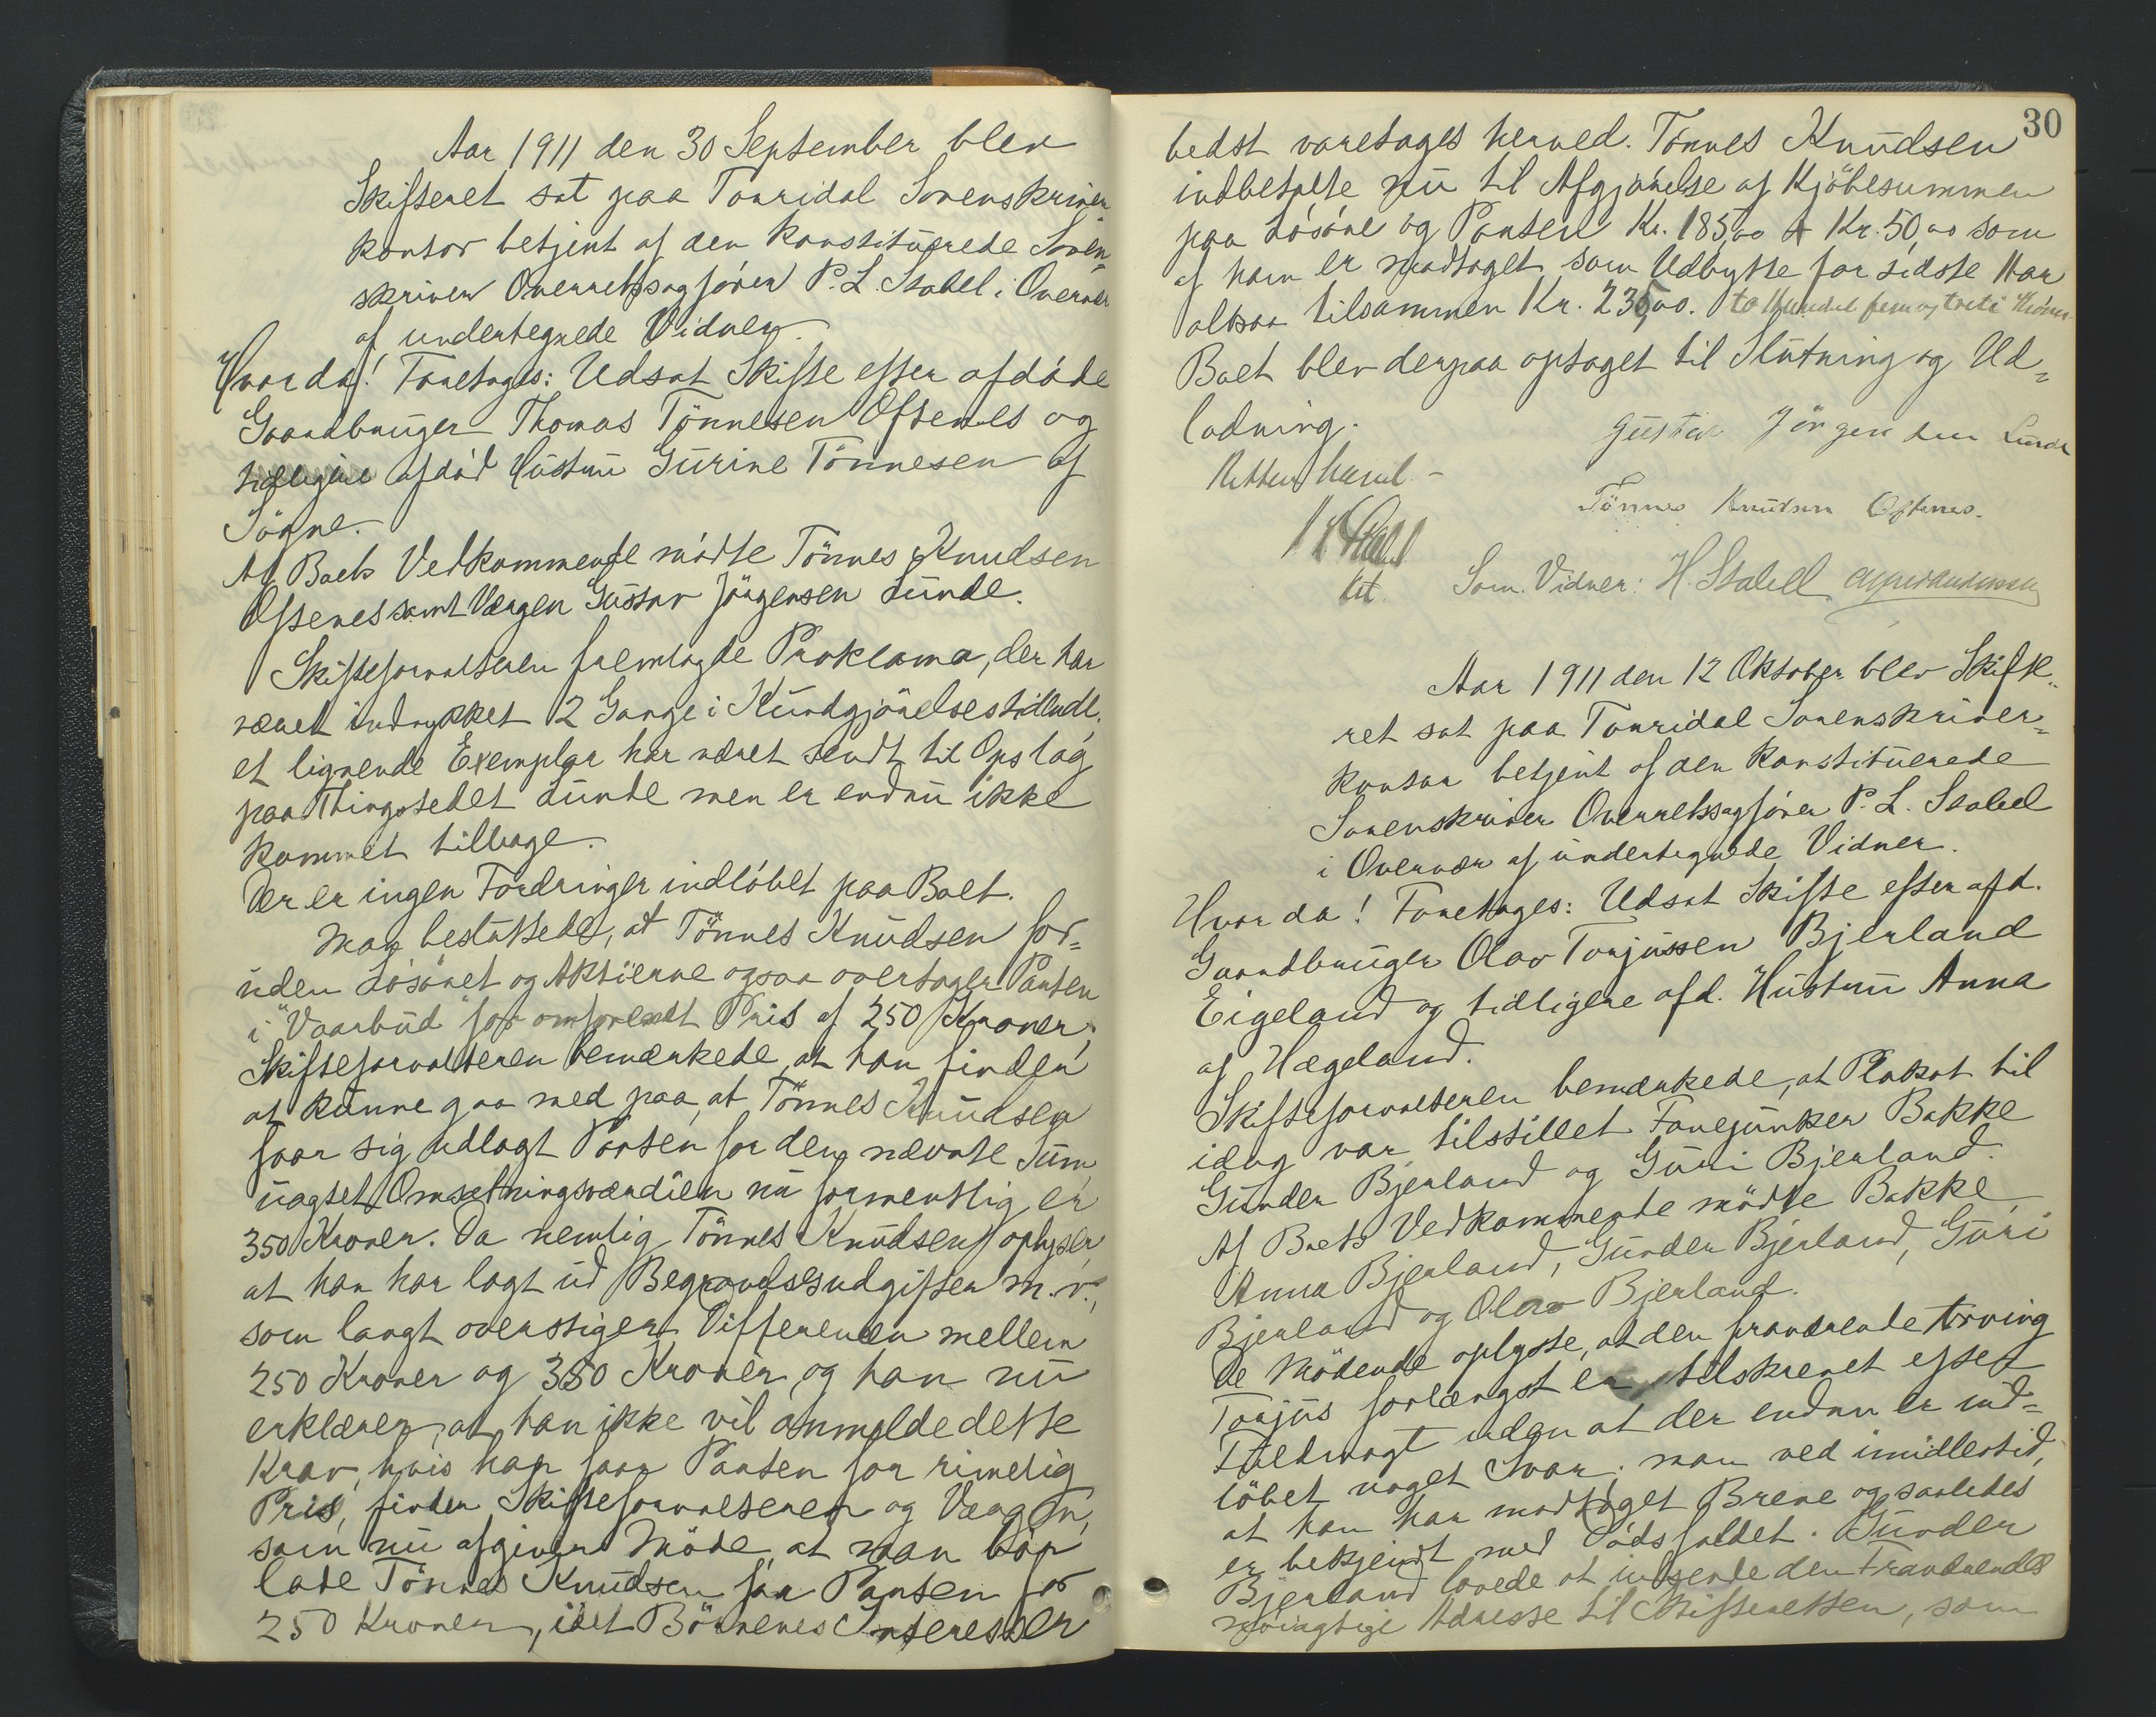 Aar 1911 den 30 September blev
Skifteret sat paa Torridal Sorenskriver
kontor betjent af den konstituerede Soren-
skriver Overretssagfører P. L. Stabel i Overvær
af undertegnede Vidner.
Hvorda! Foretoges: Udsat Skifte efter afdøde
Gaardbruger Thomas Tönnesen Oftenes og
tidligere afdöd Hustru Gurine Tönnesen af
Sögne.
Af Boets Vedkommende mödte Tönnes Knudsen
Oftenes samt Værgen Gustav Jörgensen Lunde.
Skifteforvalteren fremlagde Proklama, der har
været indrykket 2 Gange i Kundgjörelsestidende,
et lignende Exemplar har været sendt til Opslag
paa Thingstedet Lunde men er endnu ikke
kommet tilbage.
Der er ingen Fordringer indløbet paa Boet.
Man besluttede, at Tönnes Knudsen for-
uden Lösöret og Aktierne ogsaa overtager Parten
i "Vaarbud" for omforenet Pris af 250 Kroner;
Skifteforvalteren bemærkede, at han finder
at kunne gaa med paa, at Tönnes Knudsen
faar sig udlagt Parten for den nævnte Sum
uagtet Omsetningsværdien nu formentlig er
350 Kroner. Da nemlig Tönnes Knudsen oplyser,
at han har lagt ud Begravelsesudgifter m. v.,
som langt overstiger Differencen mellem
250 Kroner og 350 Kroner, og han nu
erklærer, at han ikke vil anmelde dette
Krav, hvis han faar Parten for rimelig
Pris, finder Skifteforvalteren og Værgen,
som nu afgiver Möde, at man bör
lade Tönnes Knudsen faa Parten for
250 Kroner, idet Börnenes Interesser
30
bedst varetages herved. Tönnes Knudsen
indbetalte nu til Afgjörelse af Kjöbesummen
paa Lösöre og Parten Kr. 185,00 + Kr. 50,00 som
af ham er modtaget som Udbytte for sidste Aar
altsaa tilsammen Kr. 235,00. to Hundrede fem og treti Kroner.
Boet blev derpaa optaget til Slutning og Ud-
lodning.
Gustav Jörgensen Lunde
Retten hævet –
Tönnes Knudsen Oftenes.
Som Vidner: H. Stabell
Aar 1911 den 12 Oktober blev Skifte-
ret sat paa Torridal Sorenskriver-
kontor betjent af den konstituerede
Sorenskriver Overretssagfører P. L. Stabel
i Overvær af undertegnede Vidner.
Hvor da! Foretoges: Udsat Skifte efter afd.
Gaardbruger Olav Torjussen Bjerland
Eigeland og tidligere afd. Hustru Anna
af Hægeland.
Skifteforvalteren bemærkede, at Plakat til
idag var tilstillet Fanejunker Bakke
Gunder Bjerland og Guri Bjerland.
Af Boets Vedkommende mödte Bakke,
Anna Bjerland, Gunder Bjerland, Guri
Bjerland og Olav Bjerland.
De Mödende oplyste, at den fraværende Arving
Torjus forlængst er tilskrevet efter
Fuldmagt uden at der endnu er ind-
löbet noget Svar; man ved imidlertid,
at han har modtaget Breve og saaledes
er bekjendt med Dödsfaldet. Gunder
Bjerland lovede at indsende den Fraværendes
nöiagtige Adresse til Skifteretten, som